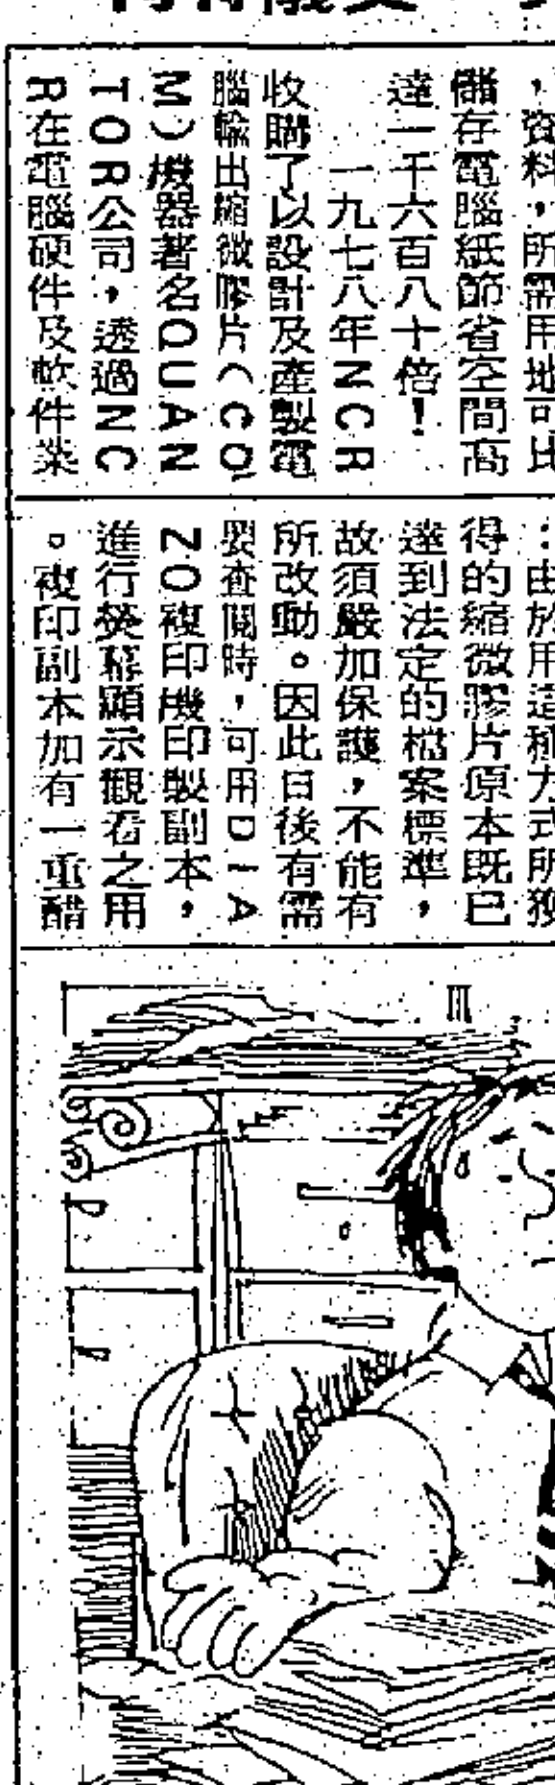 ，資料，所需用地可比
儲存電腦紙節省空間高
達一千六百八十倍！
一九七八年NCR
收購了以設計及產製電
腦輸出縮微膠片（CO
M）機器著名QUAN
TOR公司，透過NC
R在電腦硬件及軟件業
：由於用這種方式所獲
得的縮微膠片原本既已
達到法定的檔案標準，
故須嚴加保護，不能有
所改動。因此日後有需
要查閱時，可用DIA
ZO複印機印製副本，
進行熒幕顯示觀看之用
。複印副本加有一重醋